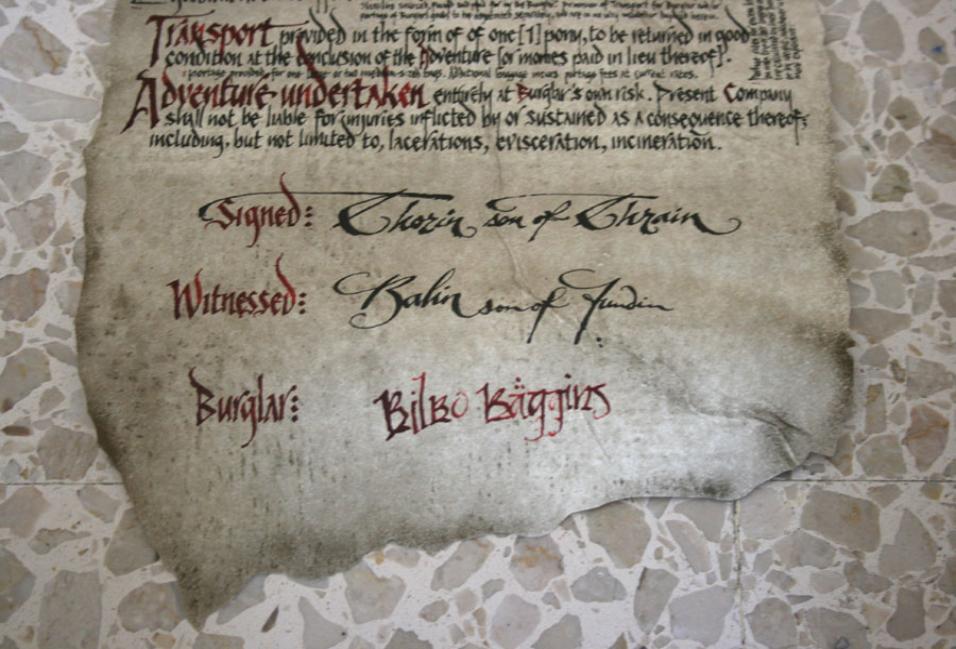 Transport provided in the form of of one [1] pony, to be returned in good
condition at the conclusion of the Adventure [or monies paid in lieu thereof].
Adventure undertaken entirely at Burglar's own risk. Present Company
shall not be liable for injuries inflicted by or sustained as a consequence thereof;
including, but not limited to, lacerations, evisceration, incineration.
Signed: Thorin son of Thrain
Witnessed: Balin son of Fundin
Burglar: Bilbo Baggins